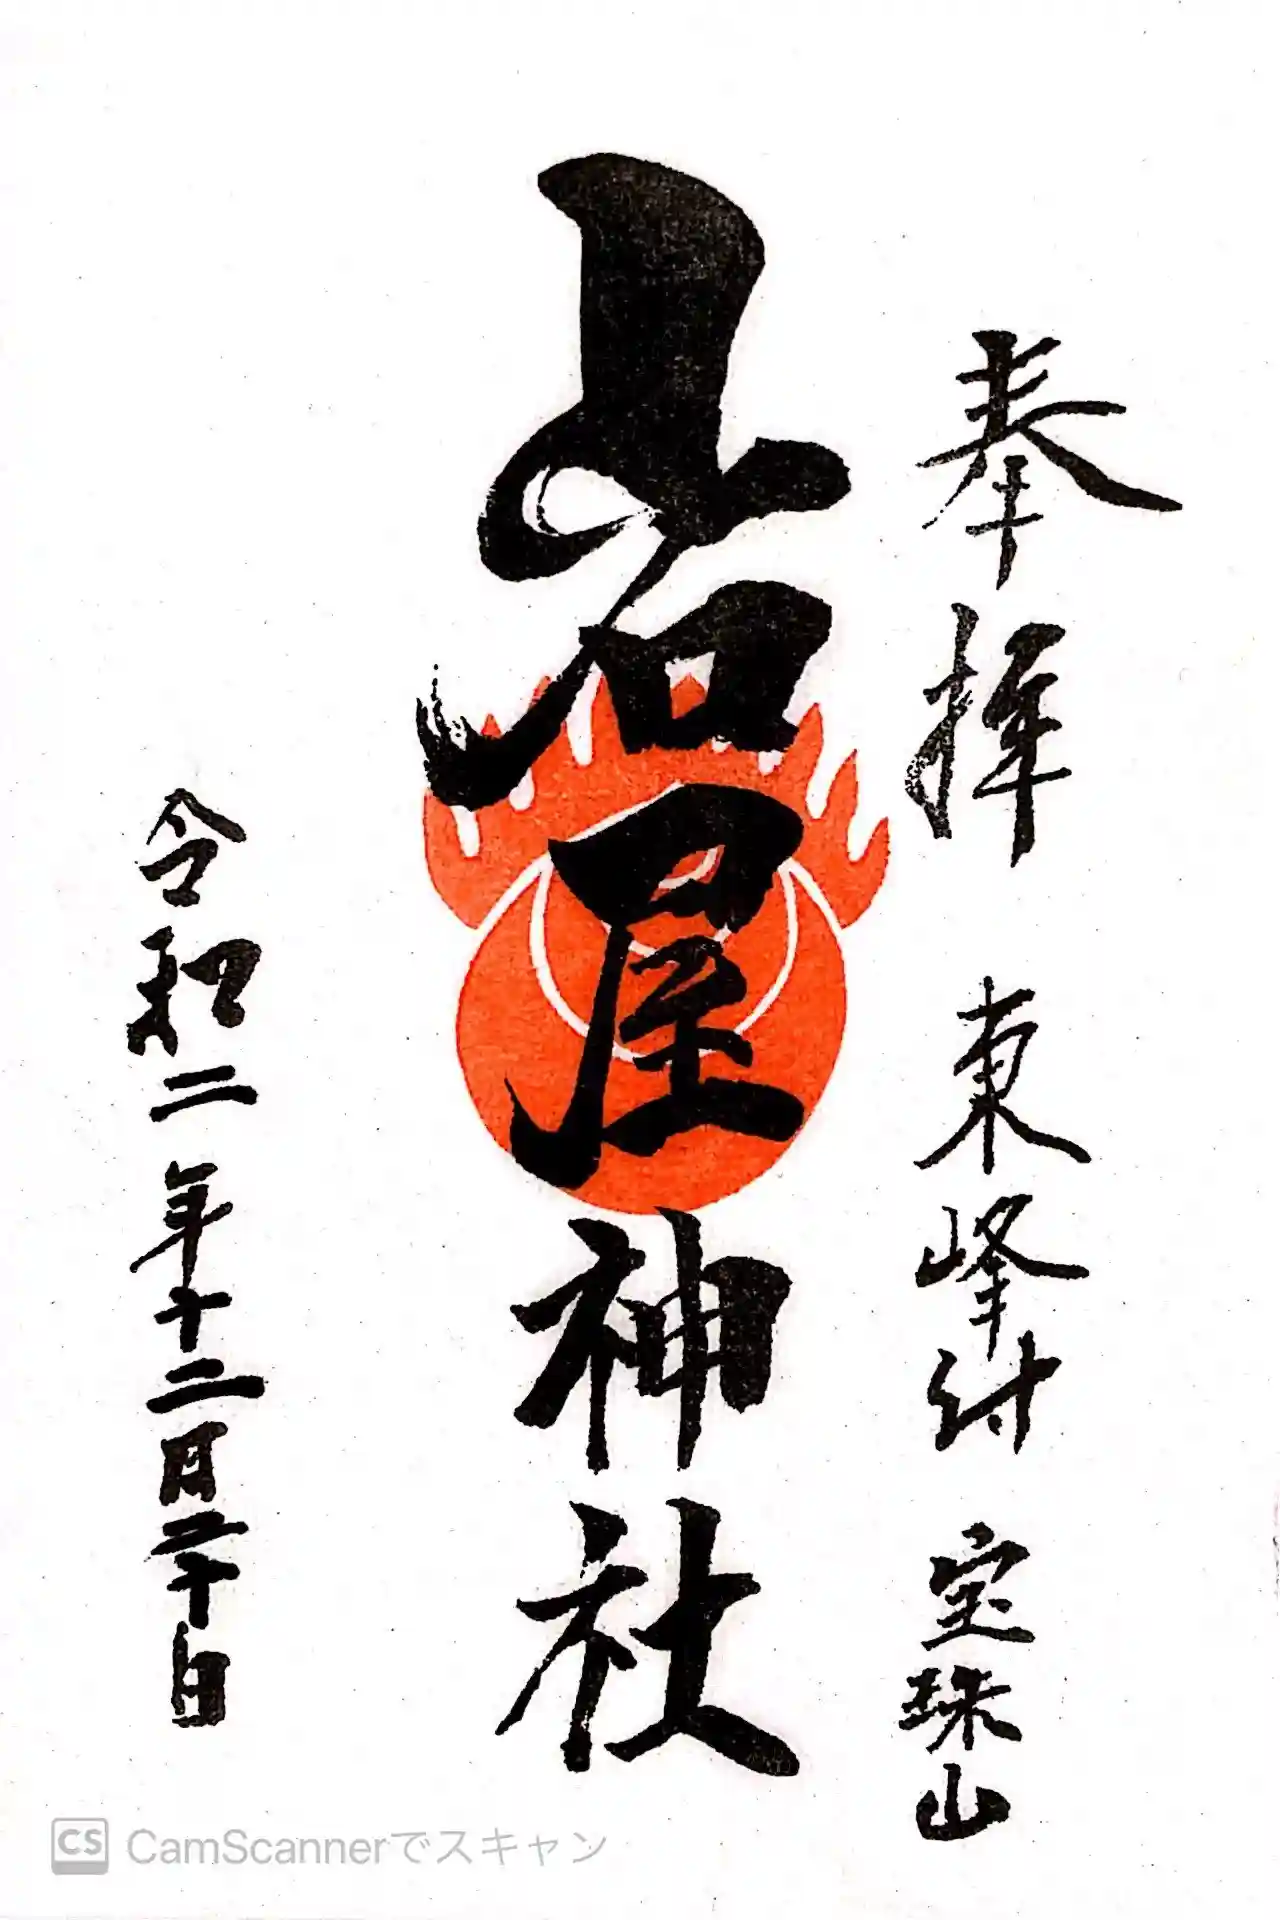 奉拝 東峰村 宝珠山
岩屋神社
令和二年十二月二十日
CS CamScannerでスキャン